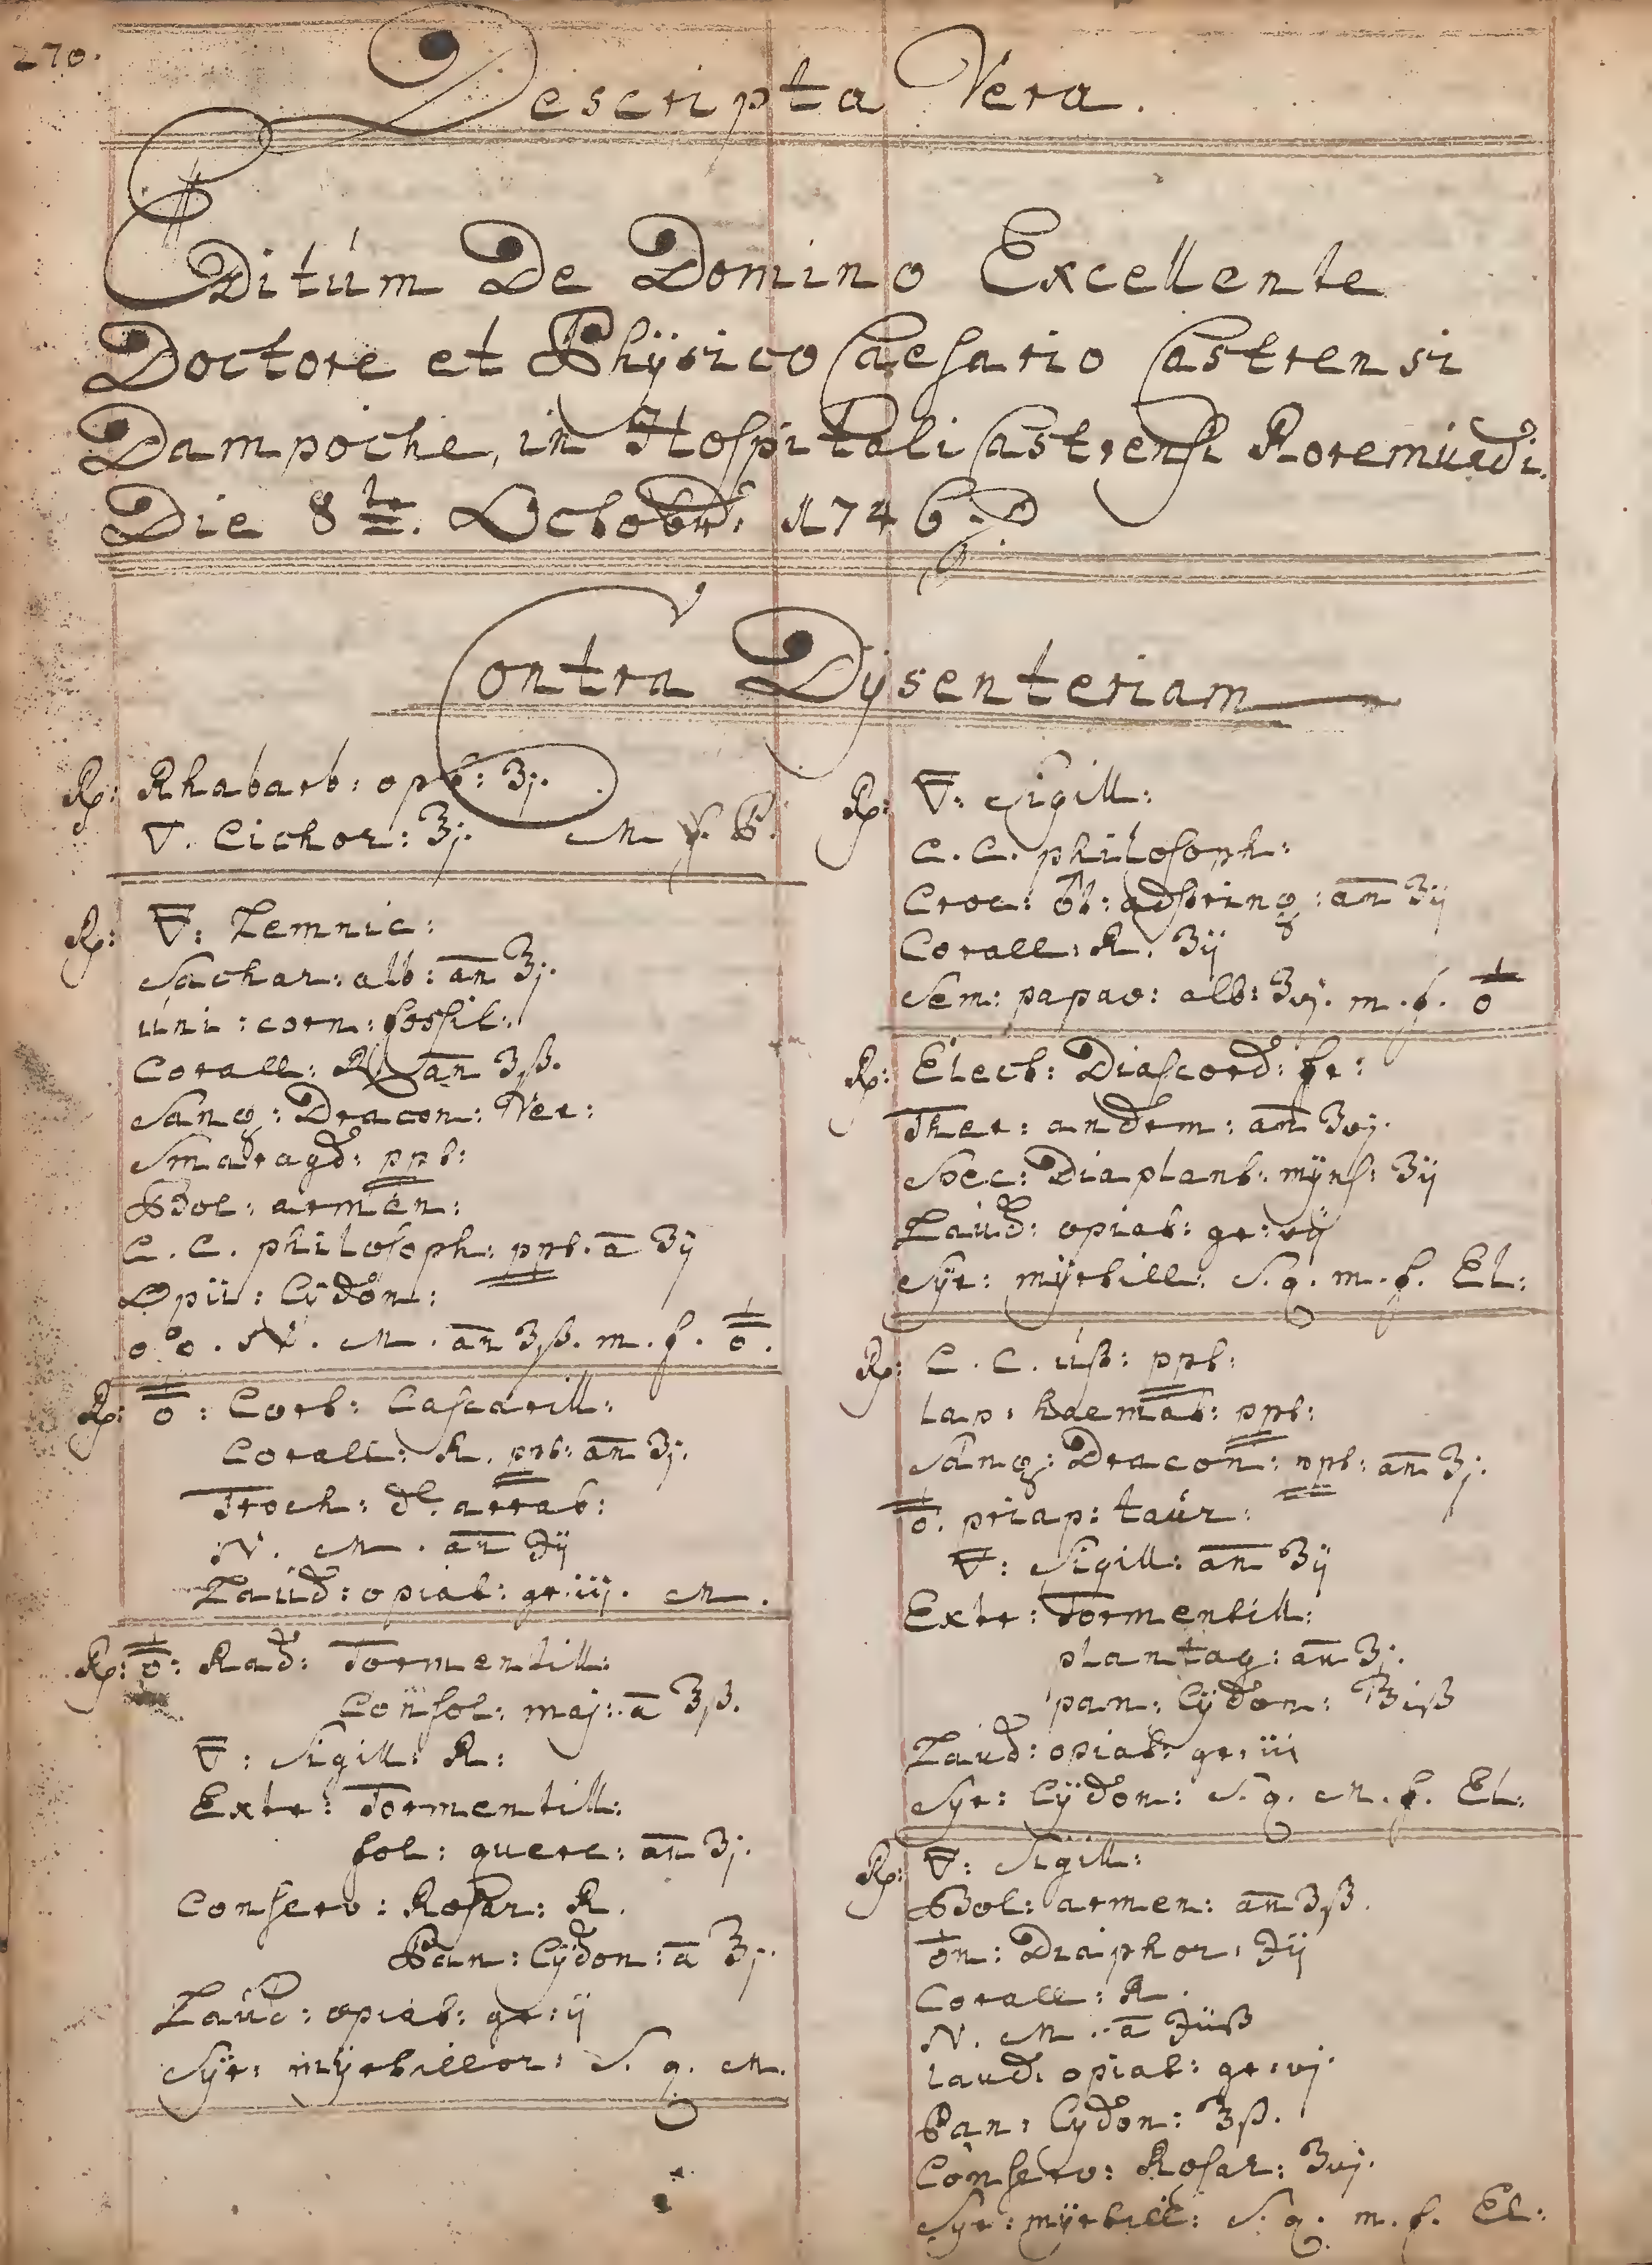 270.
Descripta Vera.
Editúm De Domino Excellente
Doctore et Phÿsico Caesario Castrensi
Dampoche, in Hospitali Castrensi Roremúndi.
Die 8te. Octobr: 1746.
Contra Dÿsenteriam
Rp: Rhabarb: opt: ʒj.
▽. Cichor: ℥j. M f.
Rp: ▽: Lemnic:
Sachar: alb: an ℥j.
úni: corn: fossil:
Corall: R an ʒß.
Sang: Dracon: Ver:
Smaragd: ppt:
Bol: armen:
C. C. philosoph: ppt. a ʒij
Opii: Cÿdon:
N. M. an ʒß. m. f.
Rp: Cort: Cascarill:
Corall: R. ppt: an ʒj.
Troch: de arrab:
N. M. an ℈ij
Laúd: opiat: gr: iij. M.
Rp: Rad: Tormentill:
Consol: maj: a ʒß.
▽: Sigill: R:
Extr: Tormentill:
fol: querc: an ʒj.
Conserv: Rosar: R.
Pan: Cÿdon: a ℥j.
Laúd: opiat: gr: ij
Sÿr: mÿrtillor: S. q. M.
Rp: ▽: Sigill:
C. C. philosoph:
Croc: ♂t: adstring: an ʒij
Corall: R. ʒij
Sem: papav: alb: ʒvj. m. f.
Rp: Elect: Diascord: fr:
Ther: androm: an ʒvj.
Spec: Diaplant: mÿns: ʒij
Laúd: opiat: gr: vij
Sÿr: mÿrtill: S. q. m. f. El:
Rp: C. C. úß: ppt:
lap: haemat: ppt:
Sang: Dracon: ppt: an ʒj.
priap: taúr:
▽: Sigill: an ʒij
Extr: Tormentill:
plantag: an ʒj.
pan: Cÿdon: ℥iß
Laúd: opiat: gr: iii
Syr: Cÿdon: S. q. M. f. El:
Rp: ▽: Sigill:
Bol: armen: an ʒß.
♁n: Diaphor: ℈ij
Corall: R.
N. M. a ℈iiß
laud: opiat: gr: vj.
Pan: Cydon: ℥ß.
Conserv: Rosar: ʒvj.
Syr: mÿrtill: S. q. m. f. El: